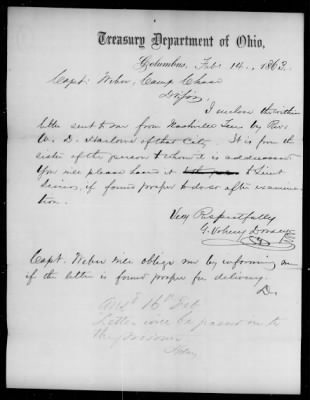 Treasury Department of Ohio,
Columbus, Feb 14., 1863.
Capt: Weber, Camp Chase
D Sir,
I inclose the within
letter sent to me from Nashville Ten by Rev
W. D. of that City. It is from the
sister of the person to whom it is addressed
You will please have it to
if found proper to do so after examina-
tion.
Very Respectfully
G. Volney Dorsey
Capt. Weber will oblige me by informing me
if the letter is found proper for delivery
D.
16th Feb
Letter will be passed on to
the prisoner